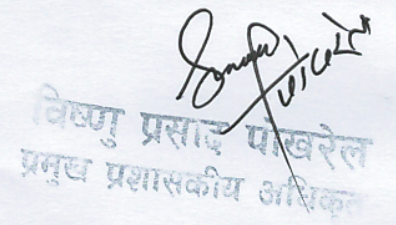 विष्णु प्रसाद पोखरेल
प्रमुख प्रशासकीय अधिकृत